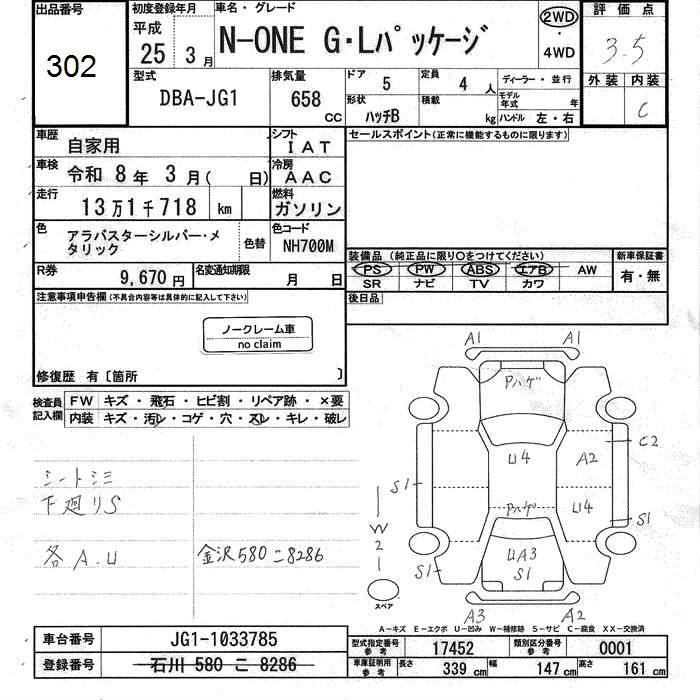 出品番号
302
初度登録年月
平成
25 年 3 月
車名・グレード
N-ONE G・Lパッケージ
2WD
・
4WD
評価点
3.5
外装 内装
C
型式
DBA-JG1
排気量
658
CC
ドア 5
定員 4 人
形状 ハッチB
積載 kg
ディーラー・並行
モデル年式 年
ハンドル 左・右
車歴 自家用
シフト IAT
車検 令和 8 年 3 月( 日)
冷房 AAC
走行 13万1千718 km
燃料 ガソリン
色 アラバスターシルバー・メタリック
色替
色コード NH700M
R券 9,670 円
名変通知期限 月 日
セールスポイント(正常に機能するものに限ります)
装備品(純正品に限り〇をつけてください)
新車保証書
PS PW ABS エアB AW
SR ナビ TV カワ
有・無
後日品
注意事項申告欄(不具合内容等は具体的に記入して下さい)
ノークレーム車
no claim
修復歴 有〔箇所 〕
検査員記入欄
FW キズ・飛石・ヒビ割・リペア跡・×要
内装 キズ・汚レ・コゲ・穴・スレ・キレ・破レ
シートシミ
下廻りS
各A.U
金沢580こ8286
A1 A1
Pハゲ
U4 A2 C2
S1
Pハゲ U4 S1
W2
UA3
S1
S1
スペア
A3 A2
A-キズ E-エクボ U-凹み W-補修跡 S-サビ C-腐食 XX-交換済
車台番号 JG1-1033785
登録番号 石川 580 こ 8286
型式指定番号 参考 17452
類別区分番号 参考 0001
車庫証明用 参考 長さ 339 cm 幅 147 cm 高さ 161 cm